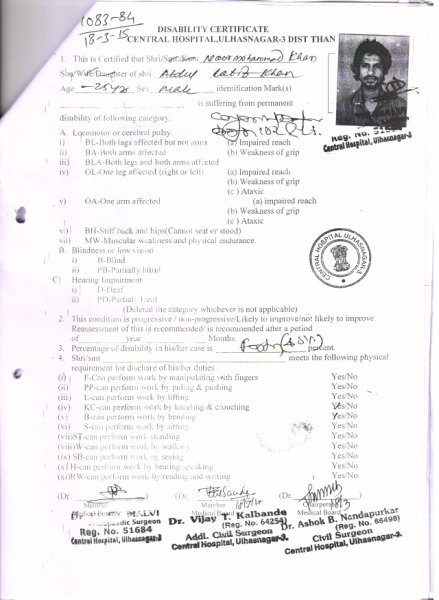 1083-84
18-3-15
DISABILITY CERTIFICATE
CENTRAL HOSPITAL,ULHASNAGAR-3 DIST THAN
1. This is Certified that Shri/Smt/Kum Noor mohammad Khan
Son/Wife/Daughter of shri Abdul Latif Khan
Age 25 yr Sex male identification Mark(s)
is suffering from permanent
disability of following category.
A. Locomotor or cerebral polay.
i) BL-Both lags affected but not arms (a) Impaired reach
ii) BA-Both arms affected (b) Weakness of grip
iii) BLA-Both legs and both arms affected
iv) OL-One leg affected (right or left) (a) Impaired reach
(b) Weakness of grip
(c) Ataxic
v) OA-One arm affected (a) impaired reach
(b) Weakness of grip
(c) Ataxic
vi) BH-Stiff back and hips(Cannot seat or stood)
vii) MW-Muscular weakness and physical endurance.
B. Blindness or low vision
i) B-Blind
ii) PB-Partially blind
C) Hearing Impairment
i) D-Deaf
ii) PD-Partialy Deaf
(Deleted the category whichever is not applicable)
2. This condition is progressive / non-progressive/Likely to improve/not likely to improve
Reassesment of this is recommended/ is recommended after a period
of year Months.
3. Percentage of disability in his/her case is percent.
4. Shri/smt meets the following physical
requirement for dischare of his/her duties
(i) F-Can perform work by manipulating with fingers Yes/No
(ii) PP-can perform work by puling & pushing Yes/No
(iii) L-can perform work by lifting Yes/No
(iv) KC-can perform work by kneeling & crouching Yes/No
(v) B-can perform work by bending Yes/No
(vi) S-can perform work by sitting Yes/No
(vii)ST-can perform work standing Yes/No
(viii)W-can perform work by walking Yes/No
(ix) SB-can perform work by seeing Yes/No
(x) H-can perform work by hearing speaking Yes/No
(xi)RW-can perform work by reading and writing Yes/No
Reg. No. 51684
Central Hospital, Ulhasnagar-3
CENTRAL HOSPITAL ULHASNAGAR-3
(Dr. (Dr. (Dr.
Member Member Chairperson
Medical Board Medical Board Medical Board
MALVI
Orthopaedic Surgeon
Reg. No. 51684
Central Hospital, Ulhasnagar-3
Dr. Vijay T. Kalbande
(Reg. No. 64254)
Addl. Civil Surgeon
Central Hospital, Ulhasnagar-3.
Dr. Ashok B. Nandapurkar
(Reg. No. 66498)
Civil Surgeon
Central Hospital, Ulhasnagar-3.